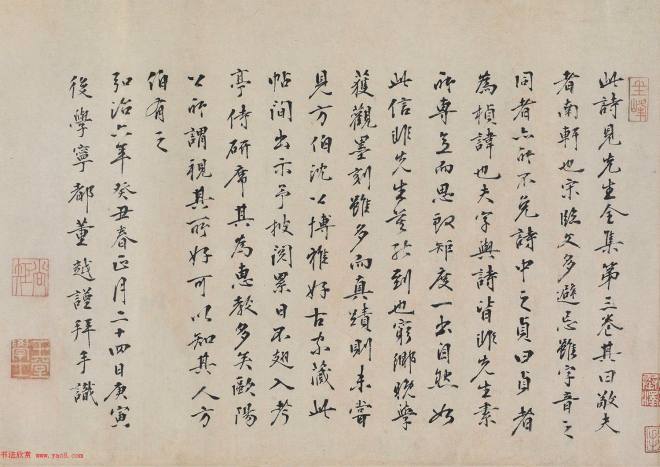 此詩見先生全集第三卷其曰敬夫
者南軒也宋臨文多避忌雖字音之
同者亦所不免詩中之貞曰貞者
為楨諱也夫字與詩皆非先生素
所專意而思致矩度一出自然如
此信非先生莫能到也窮鄉晚學
獲觀墨刻雖多而真蹟則未嘗
見方伯沈公博雅好古家藏此
帖間出示予披閱累日不翅入考
亭侍研席其為惠教多矣歐陽
公所謂視其所好可以知其人方
伯有之
弘治六年癸丑春正月二十四日庚寅
後學寧都董越謹拜手識
书法欣赏
www.yac8.com